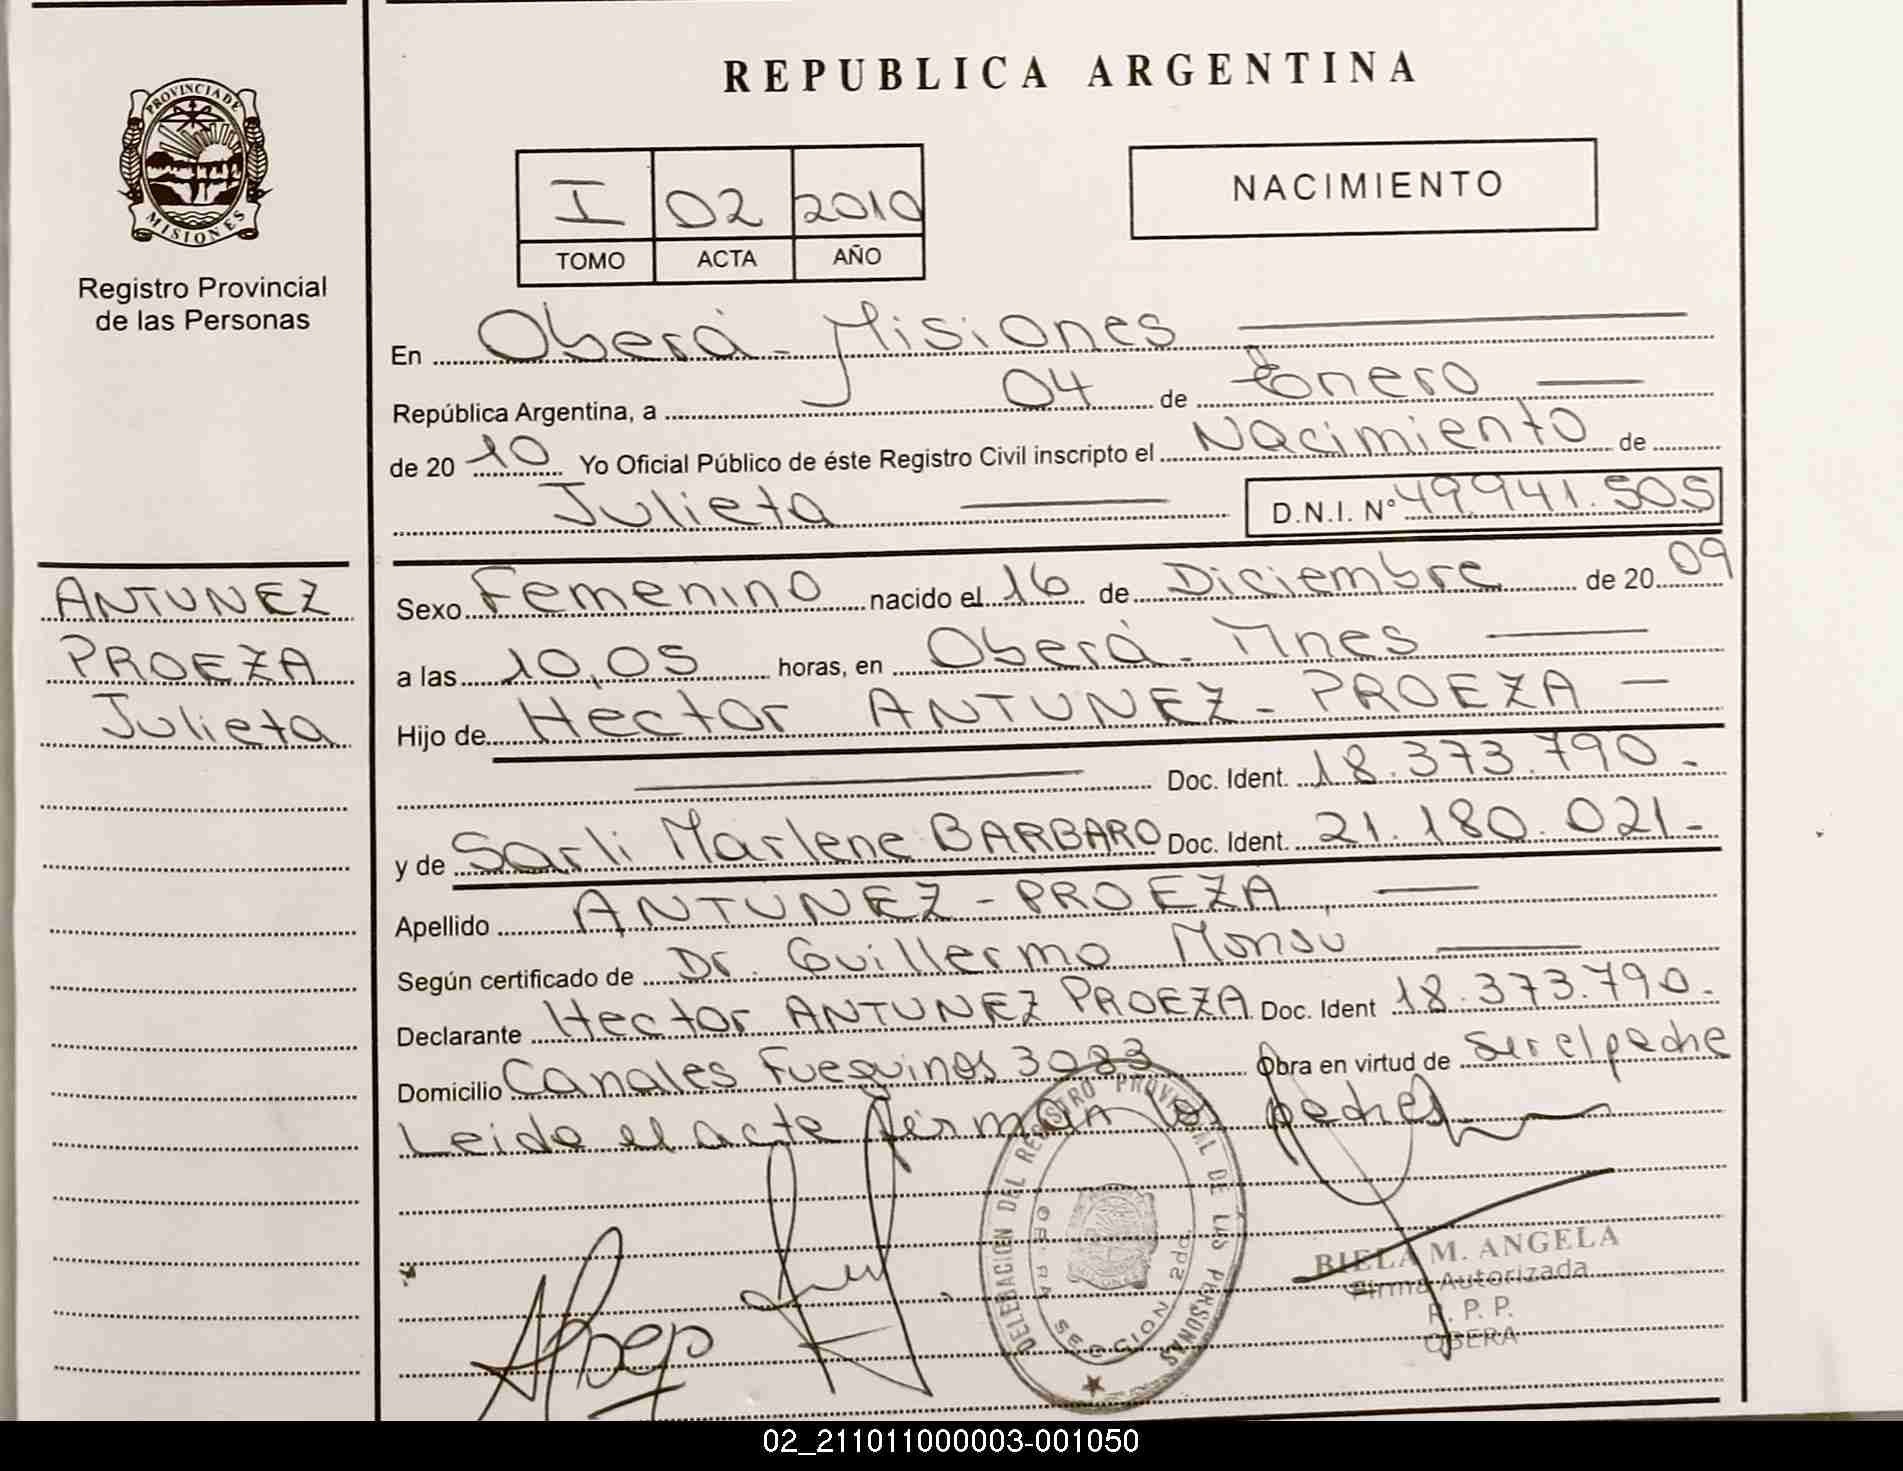 REPUBLICA ARGENTINA
PROVINCIA DE MISIONES
Registro Provincial
de las Personas
I 02 2010
TOMO ACTA AÑO
NACIMIENTO
En Oberá - Misiones
República Argentina, a 04 de Enero
de 20 10 Yo Oficial Público de éste Registro Civil inscripto el Nacimiento de
Julieta D.N.I. N° 49.941.505
ANTUNEZ
PROEZA
Julieta
Sexo Femenino nacido el 16 de Diciembre de 20 09
a las 10,05 horas, en Oberá - Mnes
Hijo de Hector ANTUNEZ - PROEZA
Doc. Ident. 18.373.790.-
y de Sarli Marlene BARBARO Doc. Ident. 21.180.021.-
Apellido ANTUNEZ - PROEZA
Según certificado de Dr. Guillermo Monsu
Declarante Hector ANTUNEZ PROEZA Doc. Ident 18.373.790.
Domicilio Canales Fueguinos 3083 Obra en virtud de ser el padre
Leida el acta firman los padres
DELEGACION DEL REGISTRO PROVINCIAL DE LAS PERSONAS
OBERA SECCION 2da.
BIELA M. ANGELA
Firma Autorizada
R. P. P.
OBERA
02_211011000003-001050